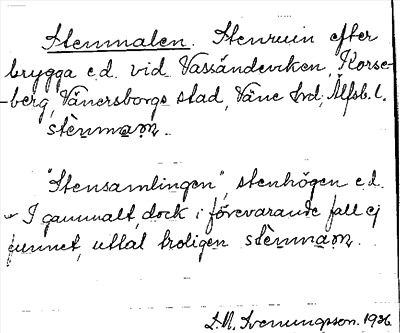 Stenmalen. Stenruin efter
brygga e.d. vid Vassändeviken, Korse-
-berg, Vänersborgs stad, Väne hd, Älfsb. l.
stènmam.
"Stensamlingen", stenhögen e.d.
I gammalt, dock i förevarande fall ej
funnet, uttal troligen stènmam.
D. A. Svenungsson. 1936